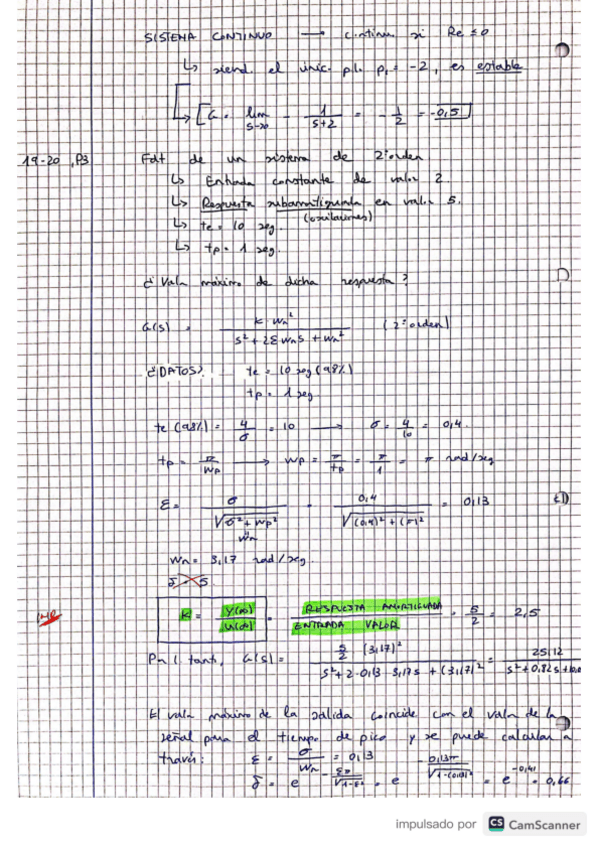 SISTEMA CONTINUO → continu si Re ≤ 0
↳ siend. el únic. pl. p₁ = -2, es estable
[G = lim s→0 - 1/(s+2) = - 1/2 = -0,5]
19-20, P3 Fdt de un sistema de 2º orden
↳ Entrada constante de valor 2.
↳ Respuesta subamortiguada en valor 5.
(oscilaciones)
↳ te = 10 seg.
↳ tp = 1 seg.
¿Valor máximo de dicha respuesta?
G(s) = K·Wn² / (s² + 2ƐWns + Wn²) (2º orden)
¿DATOS? te = 10 seg (98%)
tp = 1 seg
te (98%) = 4/σ = 10 → σ = 4/10 = 0,4
tp = π/Wp → Wp = π/tp = π/1 = π rad/seg
Ɛ = σ/√(σ² + Wp²) = 0,4/√((0,4)² + (π)²) = 0,13
Wn
Wn = 3,17 rad/seg.
K = Y(∞)/U(∞) = RESPUESTA AMORTIGUADA/ENTRADA VALOR = 5/2 = 2,5
Por l. tant, G(s) = 5/2 (3,17)² / (s² + 2·0,13·3,17s + (3,17)²) = 25,12 / (s² + 0,82s +
El valor máximo de la salida coincide con el valor de la
señal para el tiempo de pico y se puede calcular a
través: Ɛ = σ/Wn = 0,13
δ = e^(-Ɛπ/√(1-Ɛ²)) = e^(-0,13π/√(1-(0,13)²)) = e^(-0,41) = 0,66
impulsado por CS CamScanner